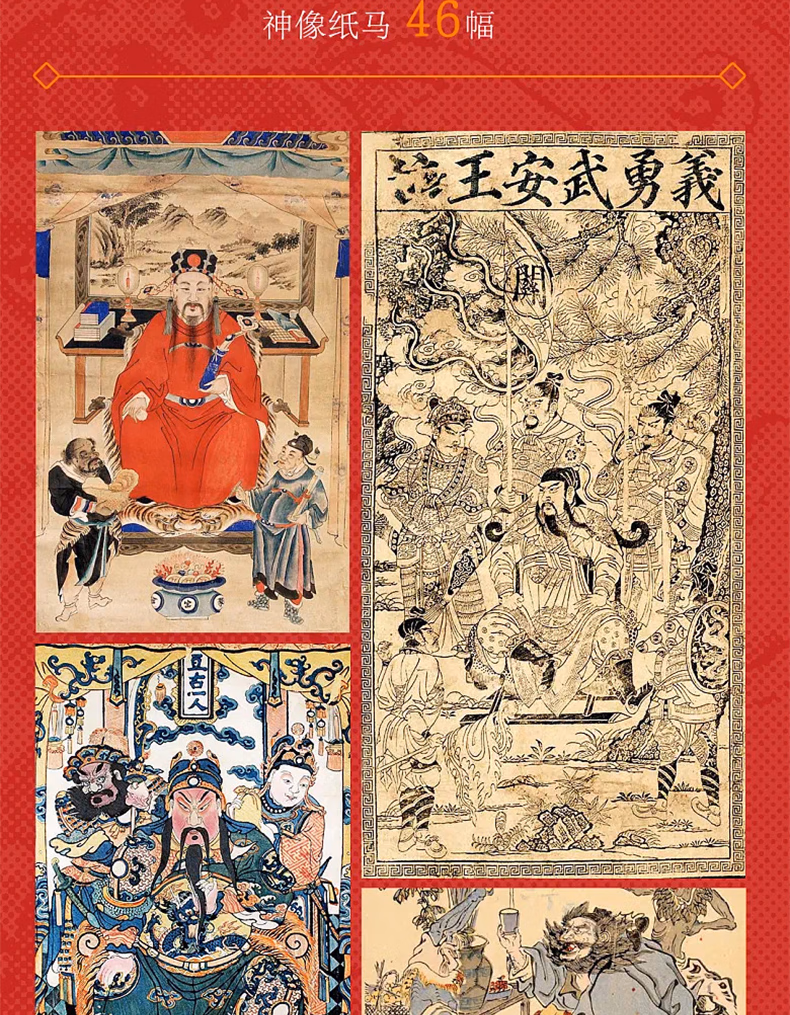 神像纸马 46幅
義勇武安王
關
亘古一人